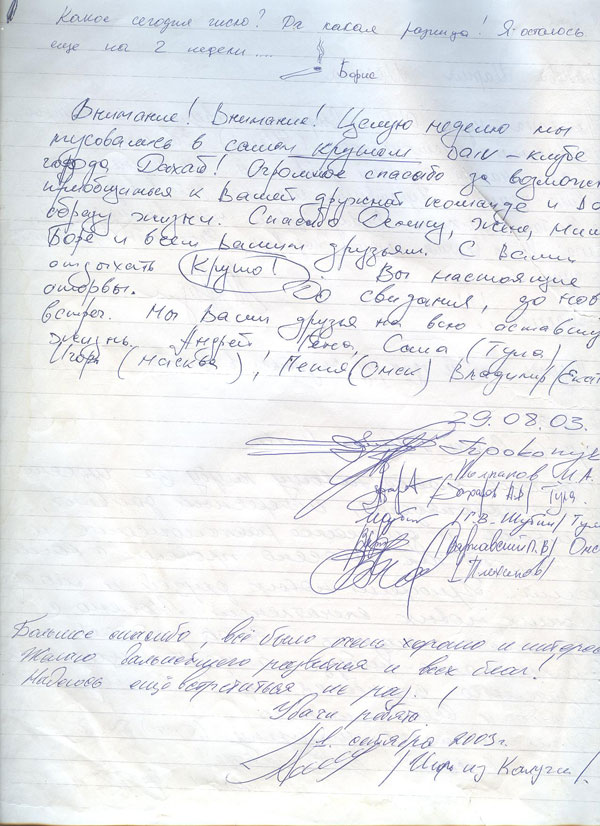 Какое сегодня число? Да какая разница! Я осталось
еще на 2 недели....
Борис
Внимание! Внимание! Целую неделю мы
тусовались в самом крутом Daiv-клубе
города Дахаб! Огромное спасибо за возможн
приобщиться к Вашей дружной команде и
образу жизни. Спасибо Денису, Жене, Миш
Боре и всем вашим друзьям. С Вами
отдыхать Круто! Вы настоящие
оторвы. До свидания, до нов
встреч. Мы Ваши друзья на всю оставшу
жизнь. Андрей, Гена, Саша (Тула)
Игорь (Москва), Петя (Омск) Владимир (Екат
29.08.03.
И.А.
Захаров А.А/ Тула.
/Г.В. Шубин/ Тул
/Варнавский П.В/ Омс
/Плотников/
Большое спасибо, всё было очень хорошо и интерес
Желаю дальнейшего развития и всех благ!
Надеюсь ещё встретиться не раз!
Удачи ребята.
1. сентября 2003г.
/Игорь из Калуги/.